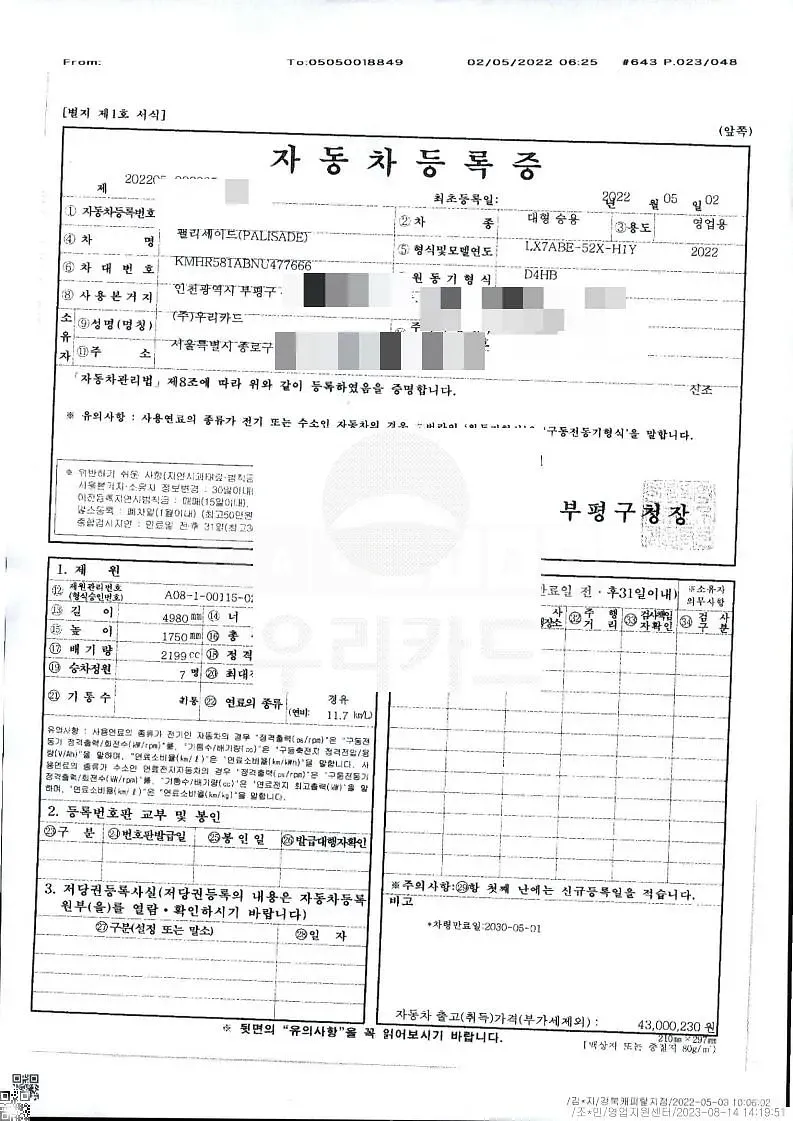 From: To:05050018849 02/05/2022 06:25 #643 P.023/048
[별지 제1호 서식]
(앞쪽)
자동차등록증
제
최초등록일: 2022 년 월 05 일 02
① 자동차등록번호 ② 차 종 대형 승용 ③용도 영업용
④ 차 명 팰리세이드(PALISADE) ⑤ 형식및모델연도 LX7ABE-52X-H1Y 2022
⑥ 차 대 번 호 KMHR581ABNU477666 원 동 기 형 식 D4HB
⑧ 사 용 본 거 지 인천광역시 부평구
소유자 ⑨성명(명칭) (주)우리카드
⑪주 소 서울특별시 종로구
「자동차관리법」 제8조에 따라 위와 같이 등록하였음을 증명합니다.
신조
※ 유의사항 : 사용연료의 종류가 전기 또는 수소인 자동차의 경우 '구동전동기형식'을 말합니다.
※ 위반하기 쉬운 사항(지연시과태료·범칙금
사용본거지·소유자 정보변경 : 30일이내
이전등록지연시범칙금 : 매매(15일이내),
말소등록 : 폐차말(1월이내) (최고50만원
종합검사지연 : 만료일 전·후 31일(최고3
부평구청장
우리카드
1. 제 원
⑫ 제원관리번호 (형식승인번호) A08-1-00115-02
⑬ 길 이 4980 mm ⑭ 너
⑮ 높 이 1750 mm ⑯ 총
⑰ 배 기 량 2199 cc ⑱ 정격
⑲ 승차정원 7 명 ⑳ 최대
㉑ 기 통 수 기통 ㉒ 연료의 종류 경유 (연비: 11.7 km/L)
만료일 전·후31일이내) ※소유자 의무사항
㉜ 주 행 거 리 ㉝ 검사책임자확인 ㉞ 검 사 구 분
유의사항 : 사용연료의 종류가 전기인 자동차의 경우 "정격출력(ps/rpm)"은 "구동전
동기 정격출력/회전수(kW/rpm)"를, "기통수/배기량(cc)"은 "구동축전지 정격전압/용
량(V/Ah)"을 말하며, "연료소비율(km/ℓ)"은 "연료소비율(km/kWh)"을 말합니다. 사
용연료의 종류가 수소인 연료전지자동차의 경우 "정격출력(ps/rpm)"은 "구동전동기
정격출력/회전수(kW/rpm)"를, "기통수/배기량(cc)"은 "연료전지 최고출력(kW)"을 말
하며, "연료소비율(km/ℓ)"은 "연료소비율(km/kg)"을 말합니다.
2. 등록번호판 교부 및 봉인
㉓구 분 ㉔번호판발급일 ㉕봉 인 일 ㉖발급대행자확인
3. 저당권등록사실(저당권등록의 내용은 자동차등록
원부(을)를 열람·확인하시기 바랍니다)
㉗구분(설정 또는 말소) ㉘일 자
※주의사항:㉙항 첫째 난에는 신규등록일을 적습니다.
비고
*차령만료일:2030-05-01
자동차 출고(취득)가격(부가세제외) : 43,000,230 원
※ 뒷면의 "유의사항"을 꼭 읽어보시기 바랍니다.
210㎜×297㎜
[백상지 또는 중질지 80g/㎡]
/김*지/경북캐피탈지점/2022-05-03 10:06:02
/조*민/영업지원센터/2023-08-14 14:19:51